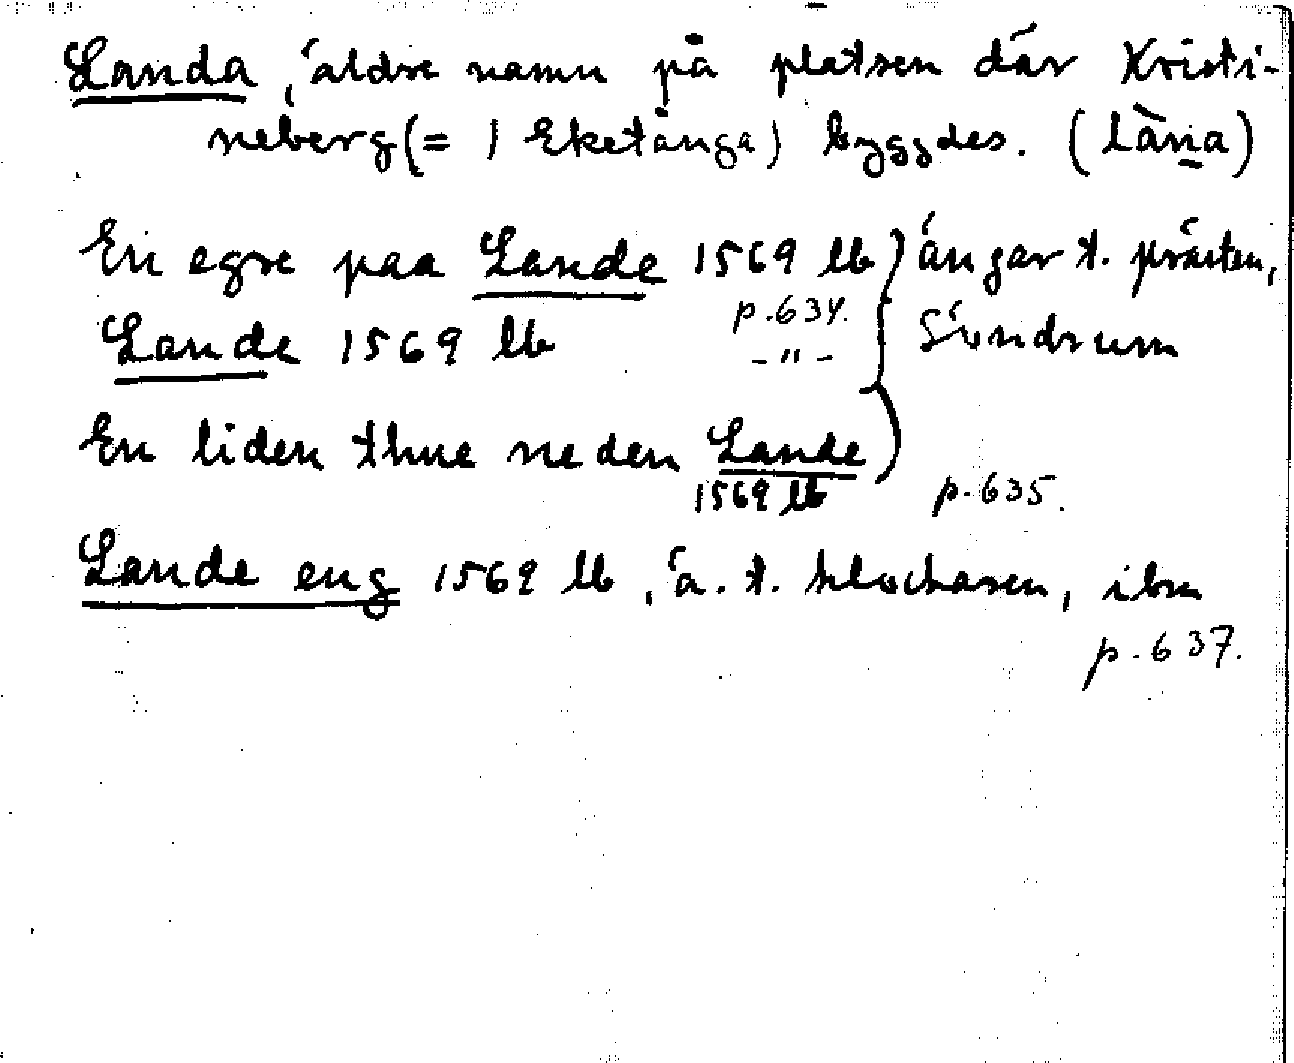 Landa, äldre namn på platsen där Kristi-
neberg (= 1 Eketånga) byggdes. (làna)
En egre paa Lande 1569 lb } ängar t. prästen,
p. 634.
Lande 1569 lb -"- Söndrum
En liden thue neden Lande
1569 lb p. 635.
Lande eng 1569 lb, ä. t. klockaren, ibm
p. 637.